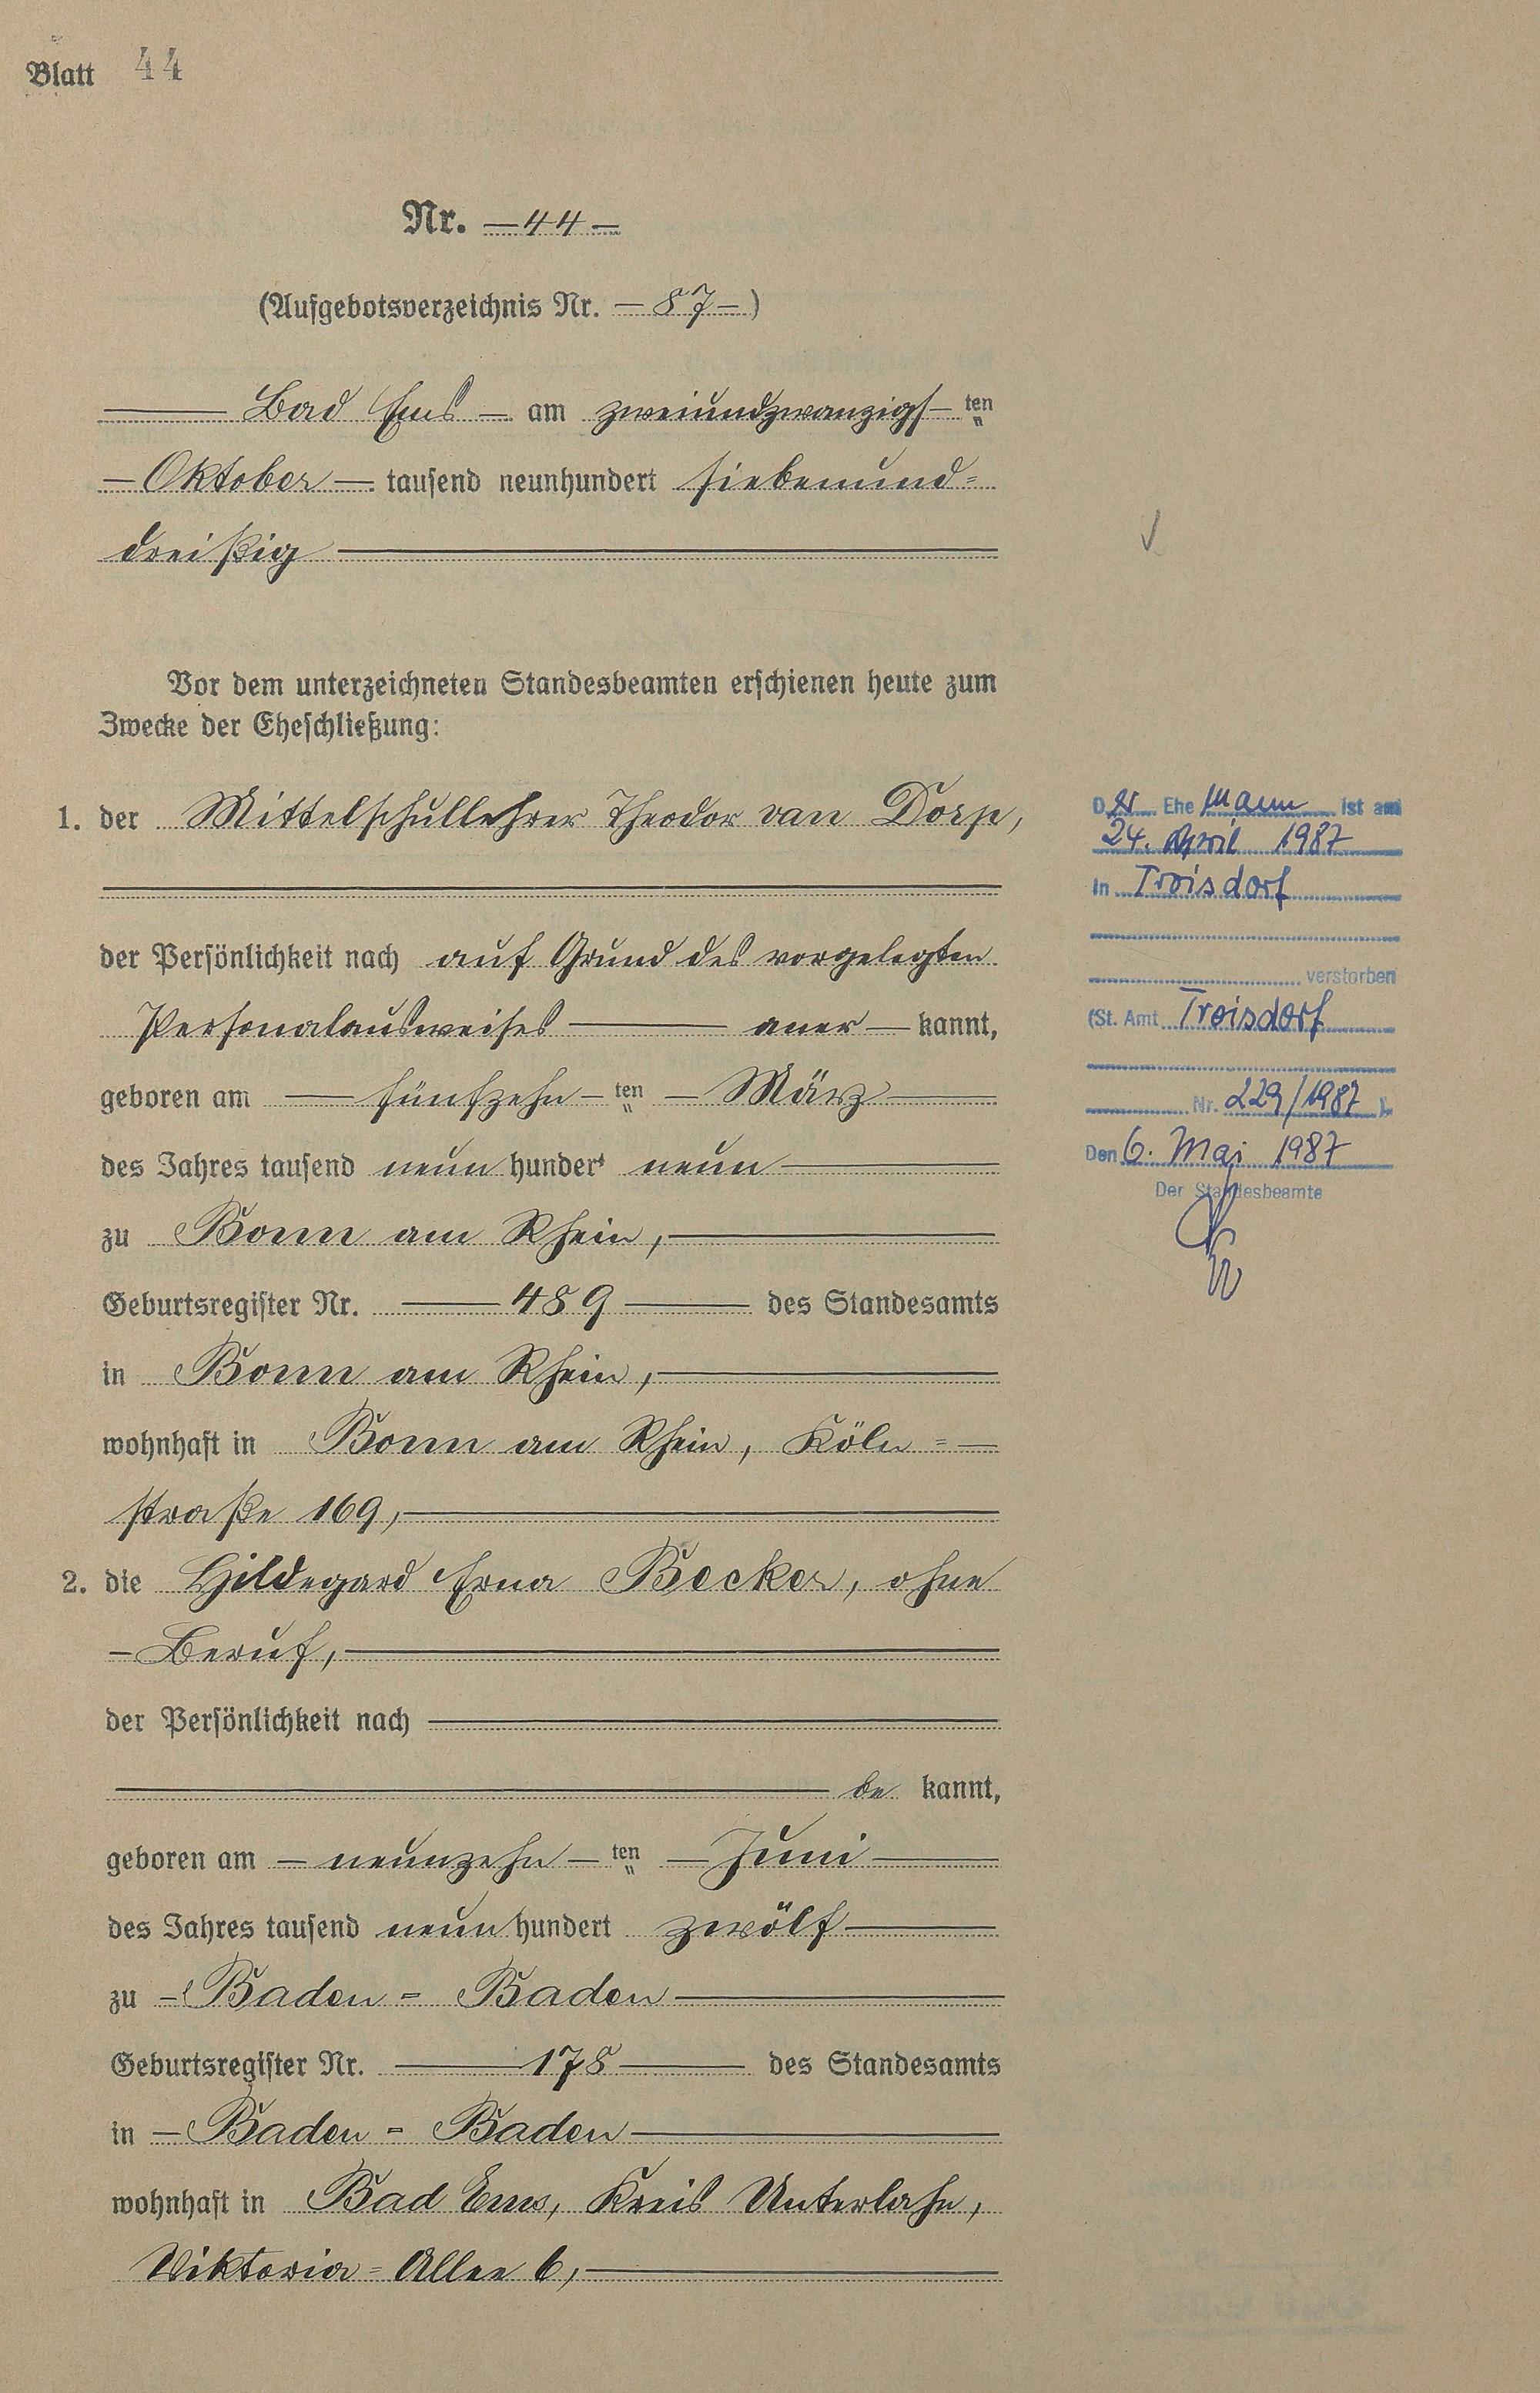 Blatt 44
Nr. — 44 —
(Aufgebotsverzeichnis Nr. — 87 — )
Bad Ems — am zweiundzwanzigs- ten
— Oktober — tausend neunhundert siebenund=
dreißig
Vor dem unterzeichneten Standesbeamten erschienen heute zum
Zwecke der Eheschließung:
1. der Mittelschullehrer Theodor van Dorp,
der Persönlichkeit nach auf Grund des vorgelegten
Personalausweises — aner — kannt,
geboren am — fünfzehn — ten — März —
des Jahres tausend neun hundert neun
zu Bonn am Rhein,
Geburtsregister Nr. — 489 — des Standesamts
in Bonn am Rhein,
wohnhaft in Bonn am Rhein, Köln =
straße 169,
2. die Hildegard Erna Becker, ohne
— Beruf,
der Persönlichkeit nach
be kannt,
geboren am — neunzehn — ten — Juni —
des Jahres tausend neun hundert zwölf
zu — Baden = Baden
Geburtsregister Nr. — 178 — des Standesamts
in — Baden = Baden
wohnhaft in Bad Ems, Kreis Unterlahn,
Viktoria = Allee 6,
Der Ehemann ist am
24. April 1987
in Troisdorf
verstorben
(St. Amt Troisdorf
Nr. 229/1987 ).
Den 6. Mai 1987
Der Standesbeamte